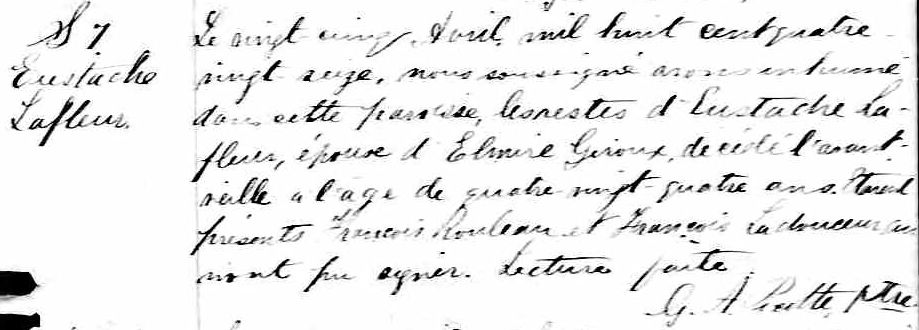 S 7
Eustache
Lafleur.
Le vingt cinq Avril, mil huit cent quatre-
vingt seize, nous soussigné avons inhumé
dans cette paroisse, les restes d'Eustache La-
fleur, époux d'Elmire Giroux, décédé l'avant-
veille a l'âge de quatre-vingt-quatre ans. Etaient
présents François Rouleau et François Ladouceur qui
n'ont pu signer. Lecture faite.
G. A. Ptre